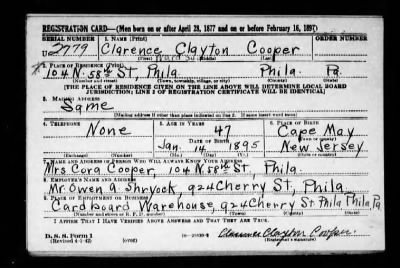 REGISTRATION CARD—(Men born on or after April 28, 1877 and on or before February 16, 1897)
SERIAL NUMBER 1. NAME (Print) ORDER NUMBER
U 2779 Clarence Clayton Cooper
(First) (Middle) (Last)
2. PLACE OF RESIDENCE (Print)
104 N. 58th St, Phila. Phila. Pa.
(Number and street) (Town, township, village, or city) (County) (State)
[THE PLACE OF RESIDENCE GIVEN ON THE LINE ABOVE WILL DETERMINE LOCAL BOARD
JURISDICTION; LINE 2 OF REGISTRATION CERTIFICATE WILL BE IDENTICAL]
3. MAILING ADDRESS
Same
[Mailing address if other than place indicated on line 2. If same insert word same]
4. TELEPHONE 5. AGE IN YEARS 6. PLACE OF BIRTH
None 47 Cape May
DATE OF BIRTH (Town or county)
Jan. 14 1895 New Jersey
(Exchange) (Number) (Mo.) (Day) (Yr.) (State or country)
7. NAME AND ADDRESS OF PERSON WHO WILL ALWAYS KNOW YOUR ADDRESS
Mrs Cora Cooper, 104 N. 58th St, Phila.
8. EMPLOYER'S NAME AND ADDRESS
Mr. Owen A. Shryock, 924 Cherry St, Phila.
9. PLACE OF EMPLOYMENT OR BUSINESS
Cardboard Warehouse, 924 Cherry St. Phila Phila Pa
(Number and street or R. F. D. number) (Town) (County) (State)
I AFFIRM THAT I HAVE VERIFIED ABOVE ANSWERS AND THAT THEY ARE TRUE.
D. S. S. Form 1
(Revised 4-1-42) (over) Clarence Clayton Cooper
(Registrant's signature)